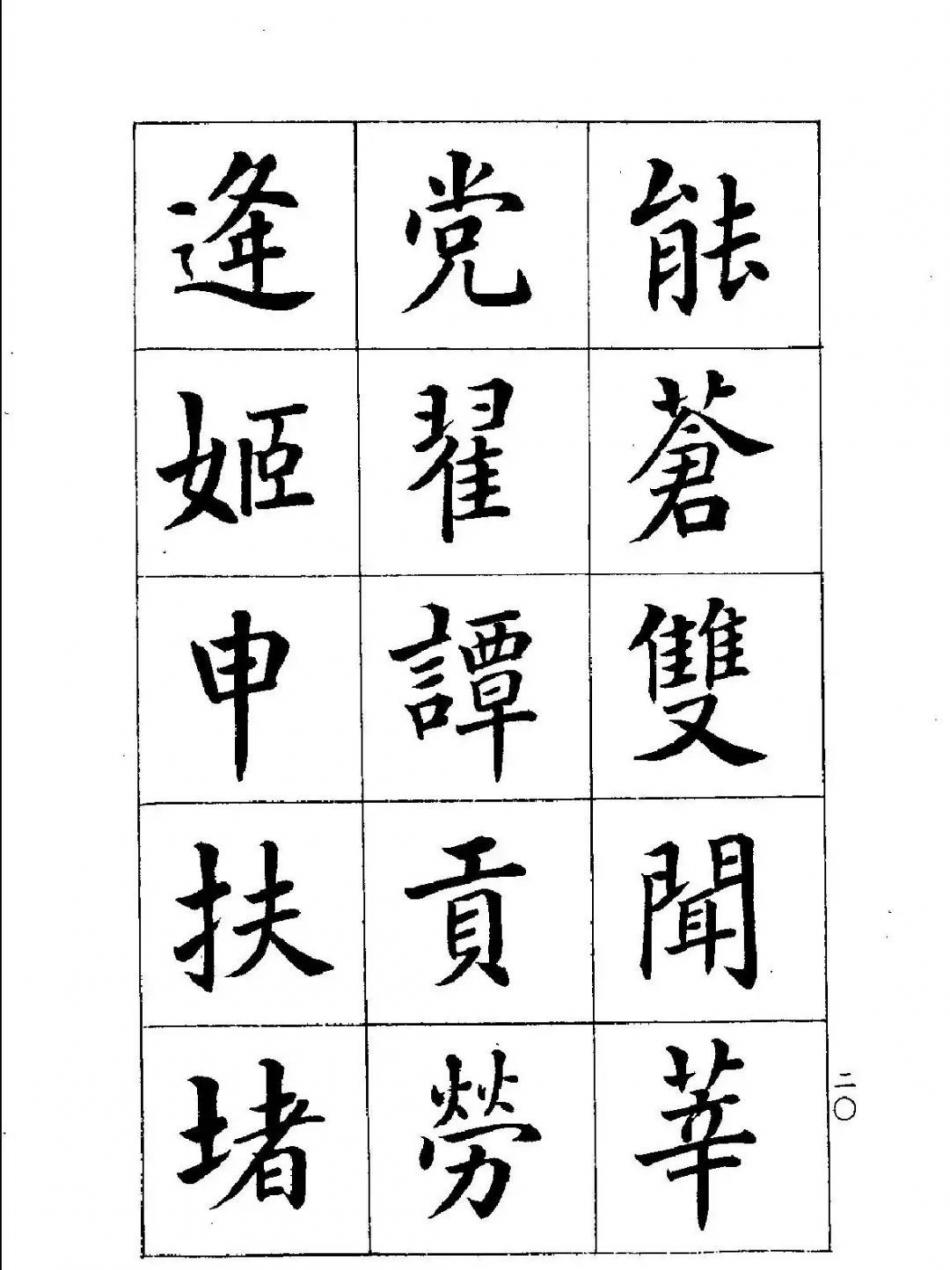 能蒼雙聞莘
党翟譚貢勞
逄姬申扶堵
二〇